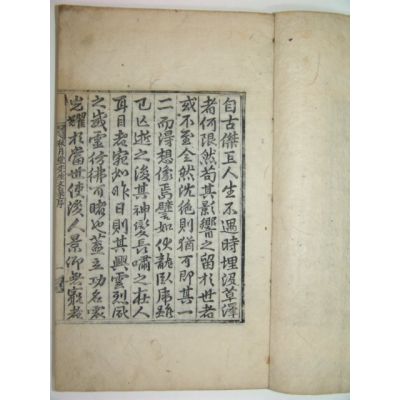 自古傑人生不遇時埋沒草澤
者何限然苟其影響之留於世者
或不至全然沈絶則猶可即其一
二而得想像焉譬如伏龍臥虎雖
已逃之後其神變長嘯之在人
耳目者宛如昨日則其興雲烈風
之威靈彷彿可睹也蓋立功名
光耀於當世使後人景仰無窮者
秋月先生文集序